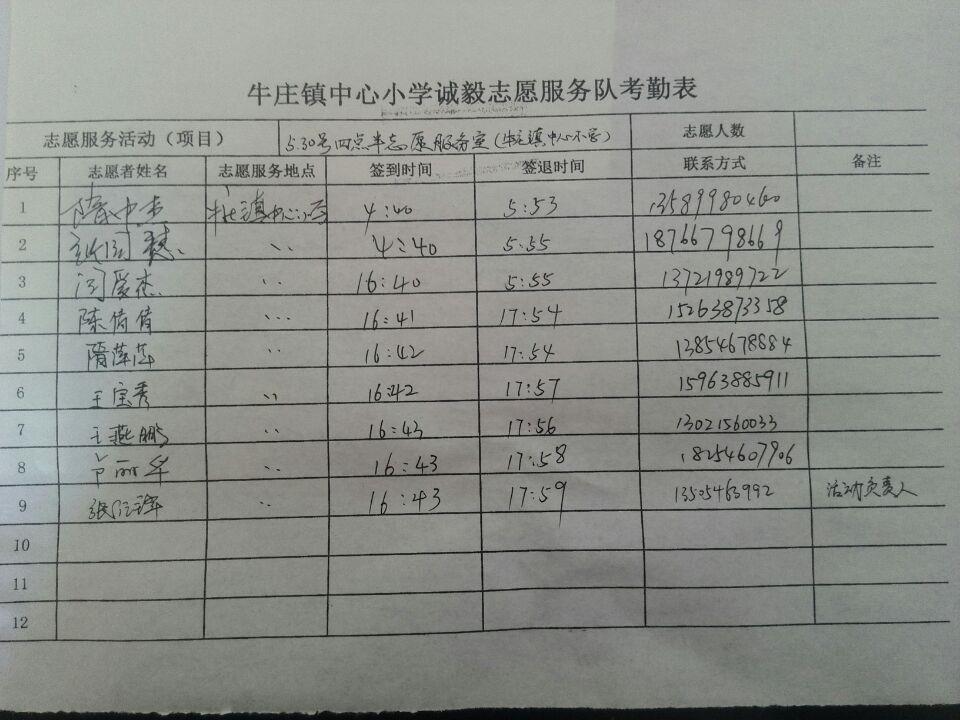 牛庄镇中心小学诚毅志愿服务队考勤表
志愿服务活动（项目） 5.30号四点半志愿服务室（牛庄镇中心小学） 志愿人数
序号 志愿者姓名 志愿服务地点 签到时间 签退时间 联系方式 备注
1 隋中杰 牛庄镇中心小学 4:40 5:53 13589980460
2 〃 4:40 5:55 18766798669
3 闫爱杰 〃 16:40 5:55 13721989722
4 陈倩倩 〃 16:41 17:54 15263873358
5 隋萍萍 〃 16:42 17:54 13854678884
6 王宝秀 〃 16:42 17:57 15963885911
7 王燕鹏 〃 16:43 17:56 13021560033
8 丽华 〃 16:43 17:58 18254607906
9 张 〃 16:43 17:59 13505463992 活动负责人
10
11
12